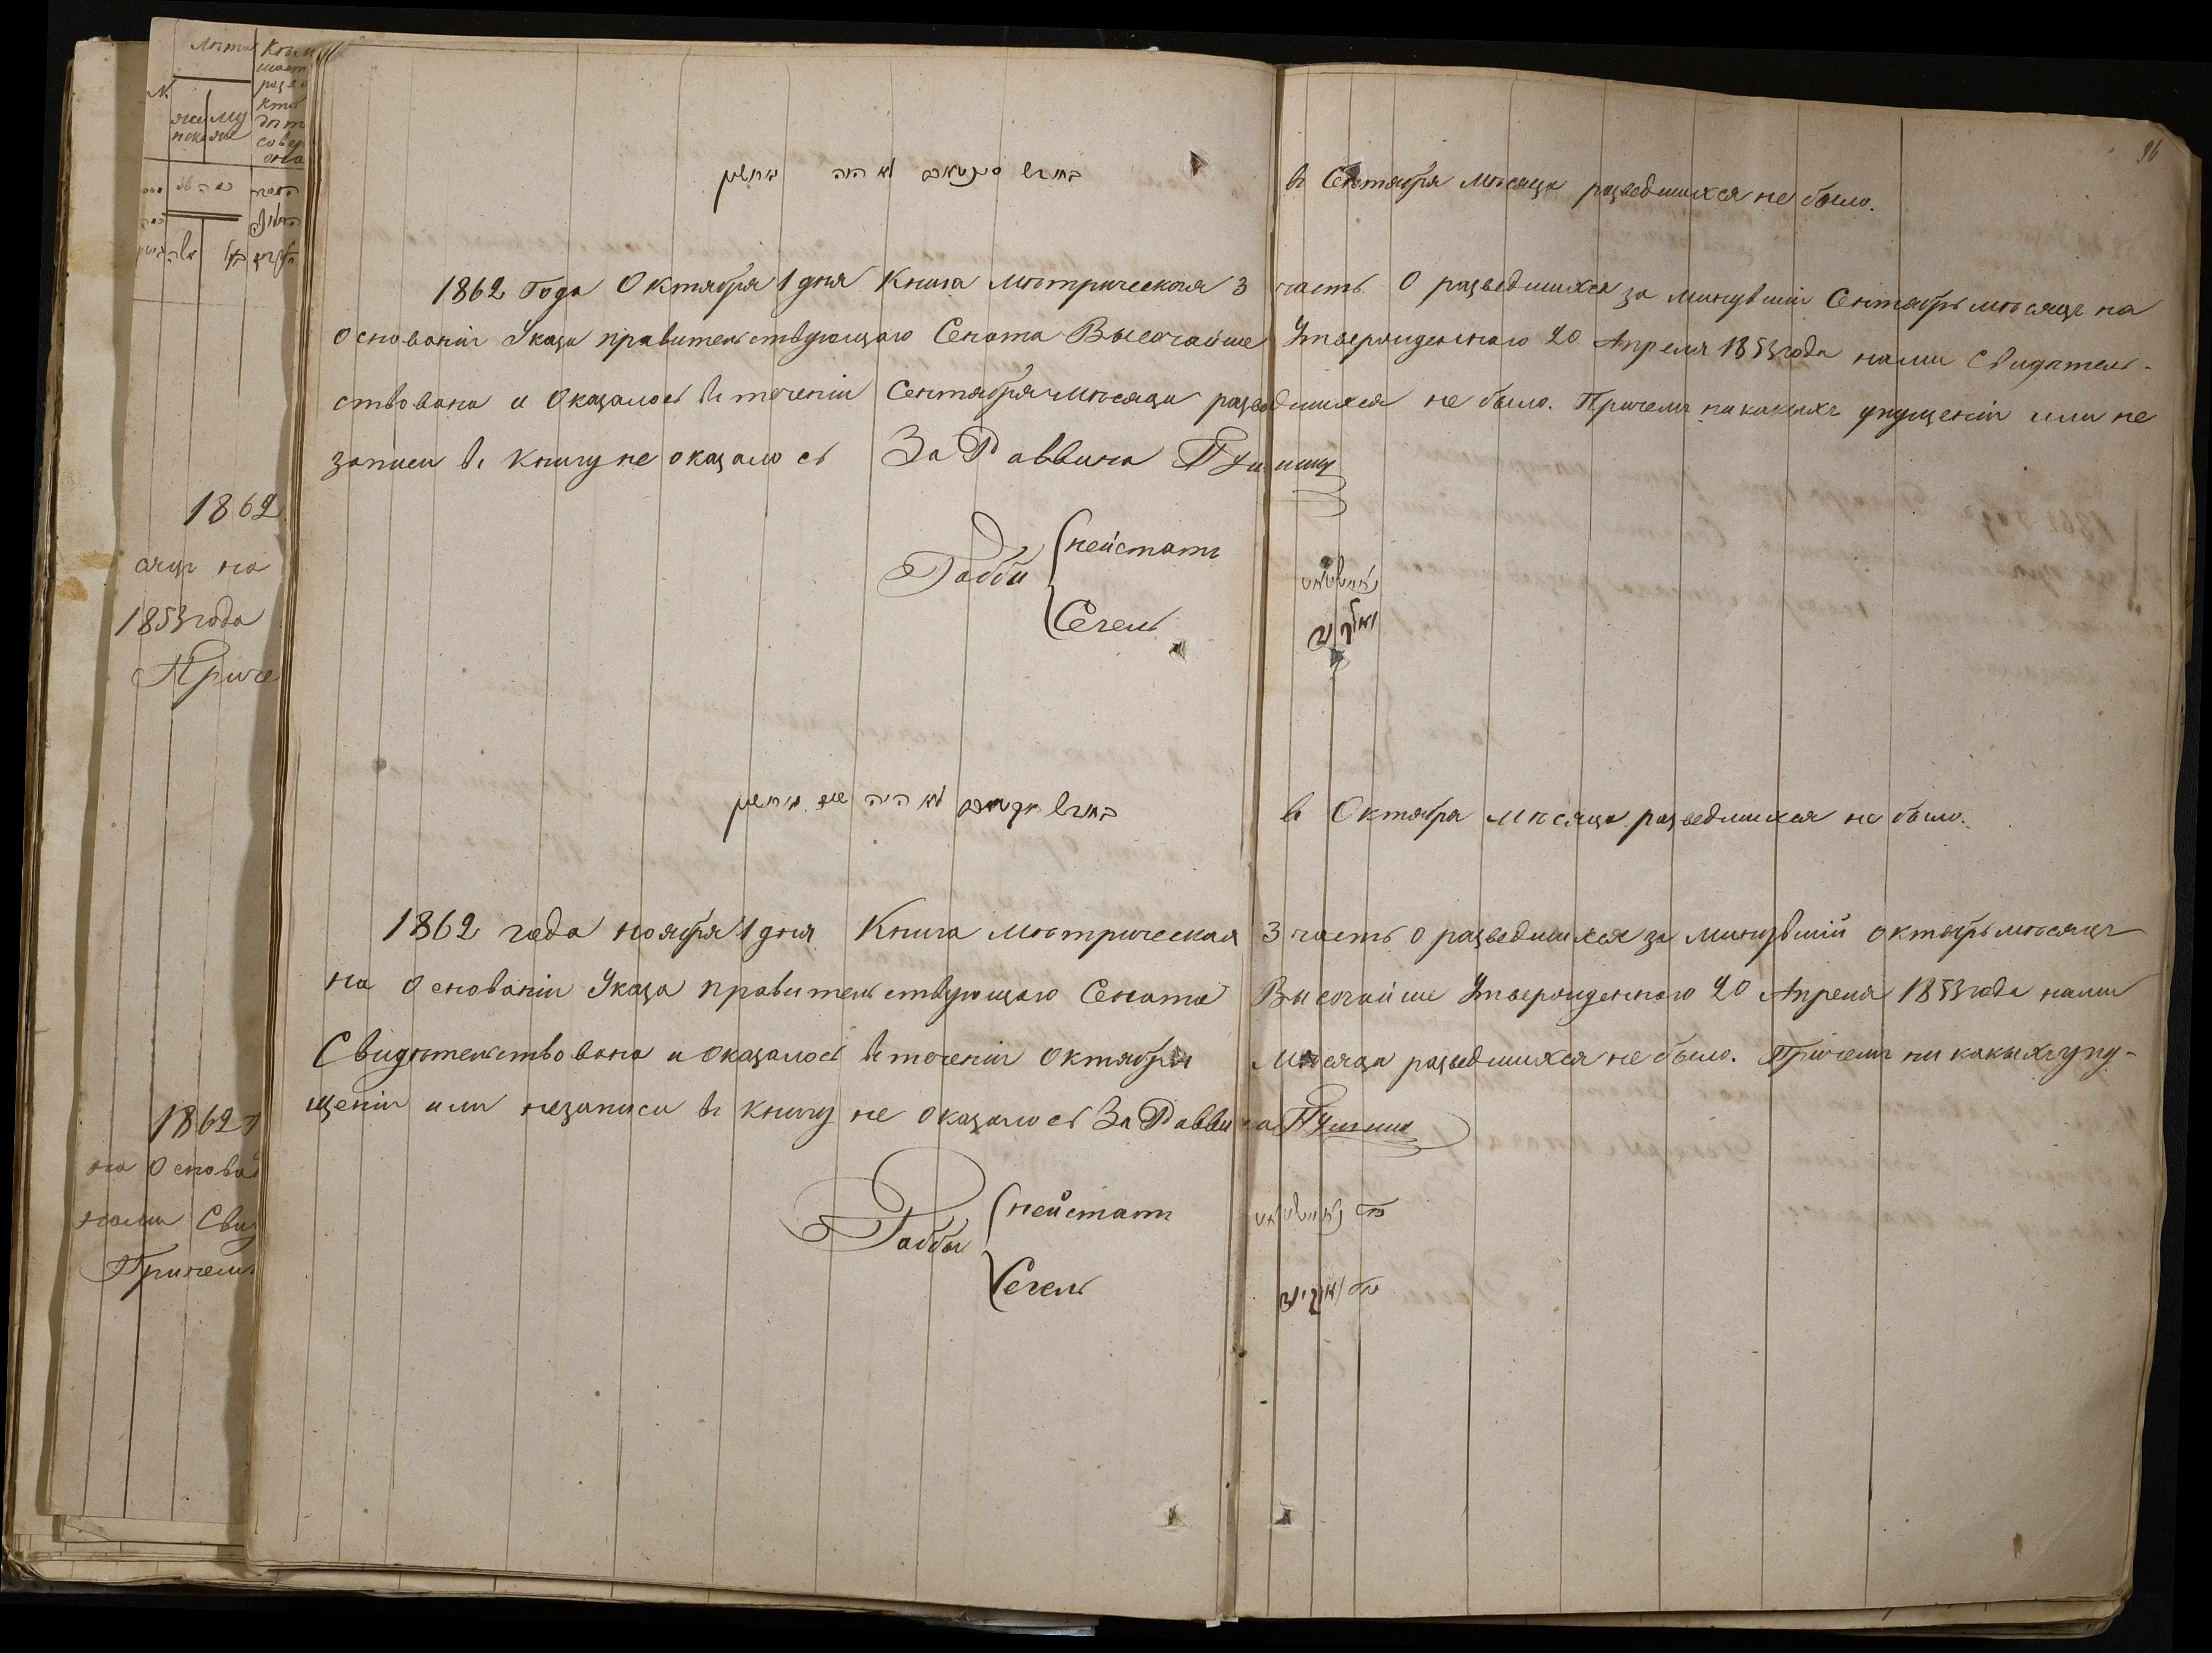 96
בחודש סענטאבר לא היה גירושין
въ Сентября мѣсяца разведшихся не было.
1862 года Октября 1 дня Книга Метрическая 3 часть О разведшихся за минувшій Сентябрь мѣсяцъ на
основаніи Указа правительствующаго Сената Высочайше Утвержденнаго 20 Апреля 1853 года нами Свидѣтель-
ствована и Оказалось въ теченіи Сентября мѣсяца разведшихся не было. Причемъ никакихъ упущеній или не
записи въ книгу не оказалось За Раввина
Рабби
Нейстатъ
Сегель
בחודש אקטאבר לא היה גירושין
въ Октября мѣсяца разведшихся не было.
1862 года ноября 1 дня Книга Метрическая 3 часть о разведшихся за минувшій октябрь мѣсяцъ
на Основаніи Указа правительствующаго Сената Высочайше Утвержденнаго 20 Апреля 1853 года нами
Свидѣтельствована и оказалось въ теченіи октября мѣсяца разведшихся не было. Причемъ ни какихъ упу-
щеніи или незаписи въ книгу не оказалось За Раввина
Раббы
Нейстатъ
Сегель
1862
сяцъ на
1853 года
Приче
1862
на Основа
нами Сви
Причемъ